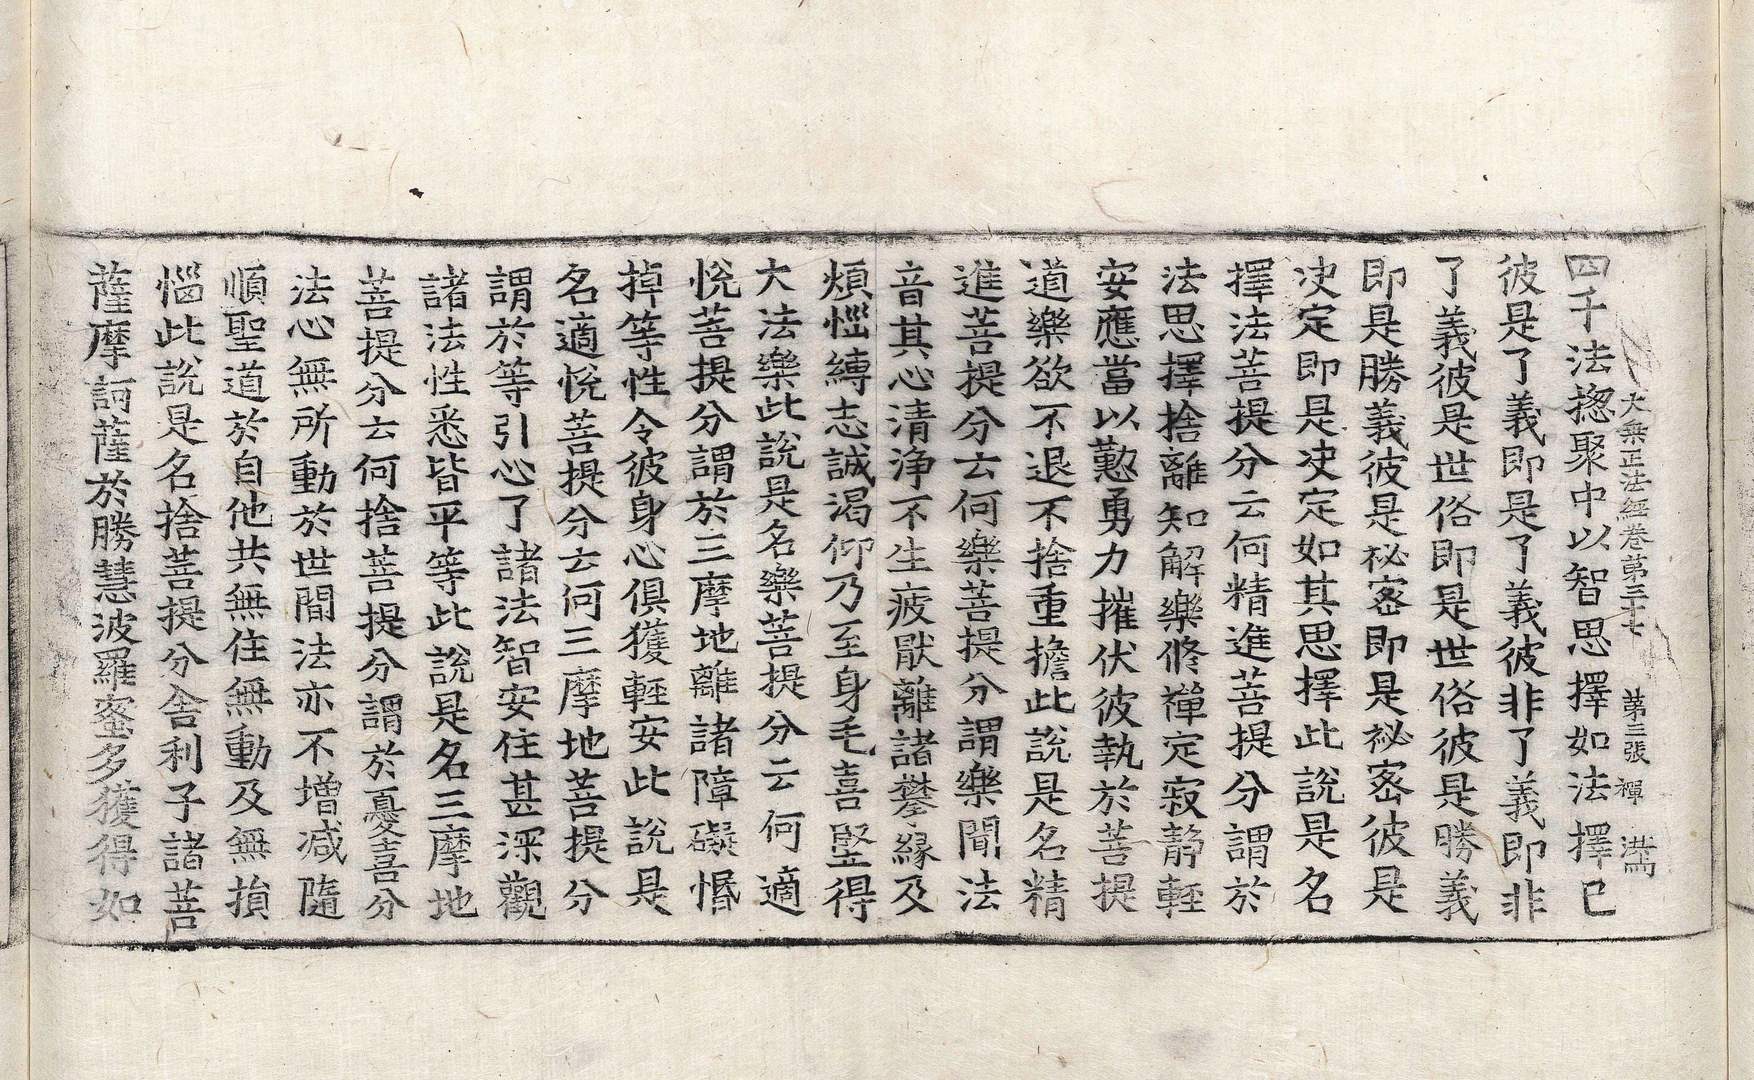 大乘正法經卷第三十七　第三張　禪
四千法揔聚中以智思擇如法擇已
彼是了義即是了義彼非了義即非
了義彼是世俗即是世俗彼是勝義
即是勝義彼是祕密即是祕密彼是
决定即是决定如其思擇此說是名
擇法菩提分云何精進菩提分謂於
法思擇捨離知解樂修禪定寂靜輕
安應當以懃勇力摧伏彼執於菩提
道樂欲不退不捨重擔此說是名精
進菩提分云何樂菩提分謂樂聞法
音其心清淨不生疲猒離諸攀緣及
煩惱縛志誠渴仰乃至身毛喜竪得
大法樂此說是名樂菩提分云何適
悅菩提分謂於三摩地離諸障礙惛
掉等性令彼身心俱獲輕安此說是
名適悅菩提分云何三摩地菩提分
謂於等引心了諸法智安住甚深觀
諸法性悉皆平等此說是名三摩地
菩提分云何捨菩提分謂於憂喜分
法心無所動於世間法亦不增減隨
順聖道於自他共無住無動及無損
惱此說是名捨菩提分舍利子諸菩
薩摩訶薩於勝慧波羅蜜多獲得如